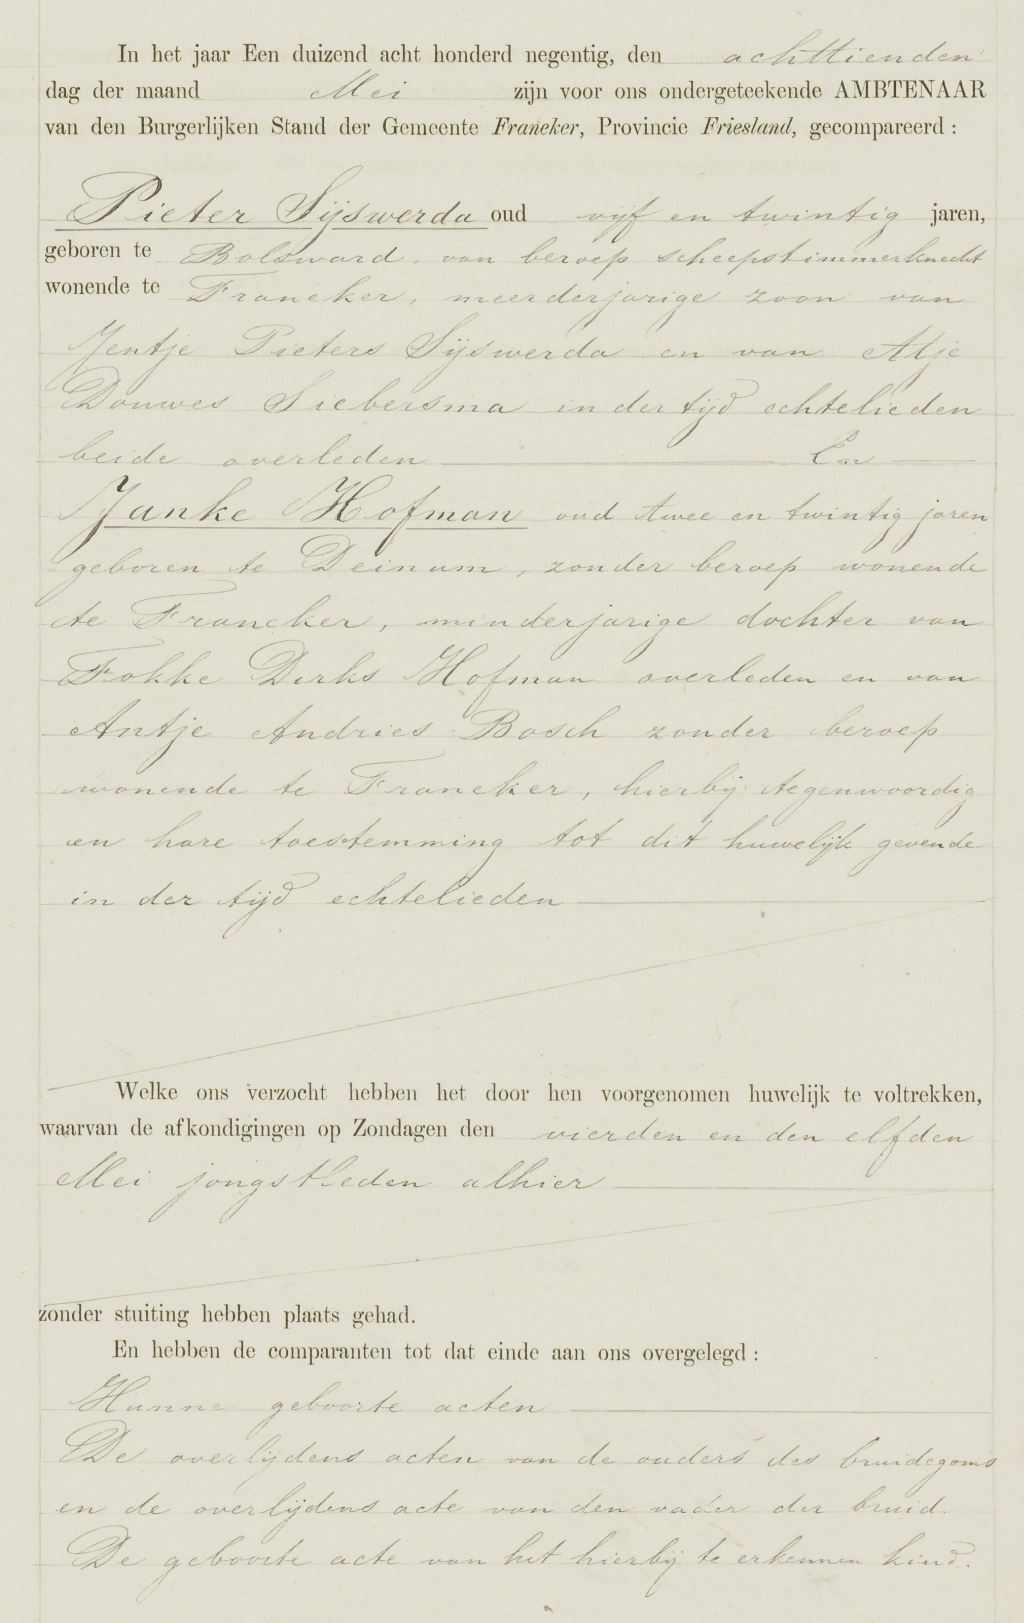 In het jaar Een duizend acht honderd negentig, den achttienden
dag der maand Mei zijn voor ons ondergeteekende AMBTENAAR
van den Burgerlijken Stand der Gemeente Franeker, Provincie Friesland, gecompareerd :
Pieter Sijswerda oud vijf en twintig jaren,
geboren te Bolsward. van beroep scheepstimmerknecht
wonende te Franeker, meerderjarige zoon van
Jentje Pieters Sijswerda en van Atje
Douwes Siebersma in der tijd echtelieden
beide overleden En
Janke Hofman oud twee en twintig jaren
geboren te Deinum, zonder beroep wonende
te Franeker, minderjarige dochter van
Fokke Dirks Hofman overleden en van
Antje Andries Bosch zonder beroep
wonende te Franeker, hierbij tegenwoordig
en hare toestemming tot dit huwelijk gevende
in der tijd echtelieden
Welke ons verzocht hebben het door hen voorgenomen huwelijk te voltrekken,
waarvan de afkondigingen op Zondagen den vierden en den elfden
Mei jongstleden alhier
zonder stuiting hebben plaats gehad.
En hebben de comparanten tot dat einde aan ons overgelegd :
Hunne geboorte acten
De overlijdens acten van de ouders des bruidegoms
en de overlijdens acte van den vader der bruid.
De geboorte acte van het hierbij te erkennen kind.